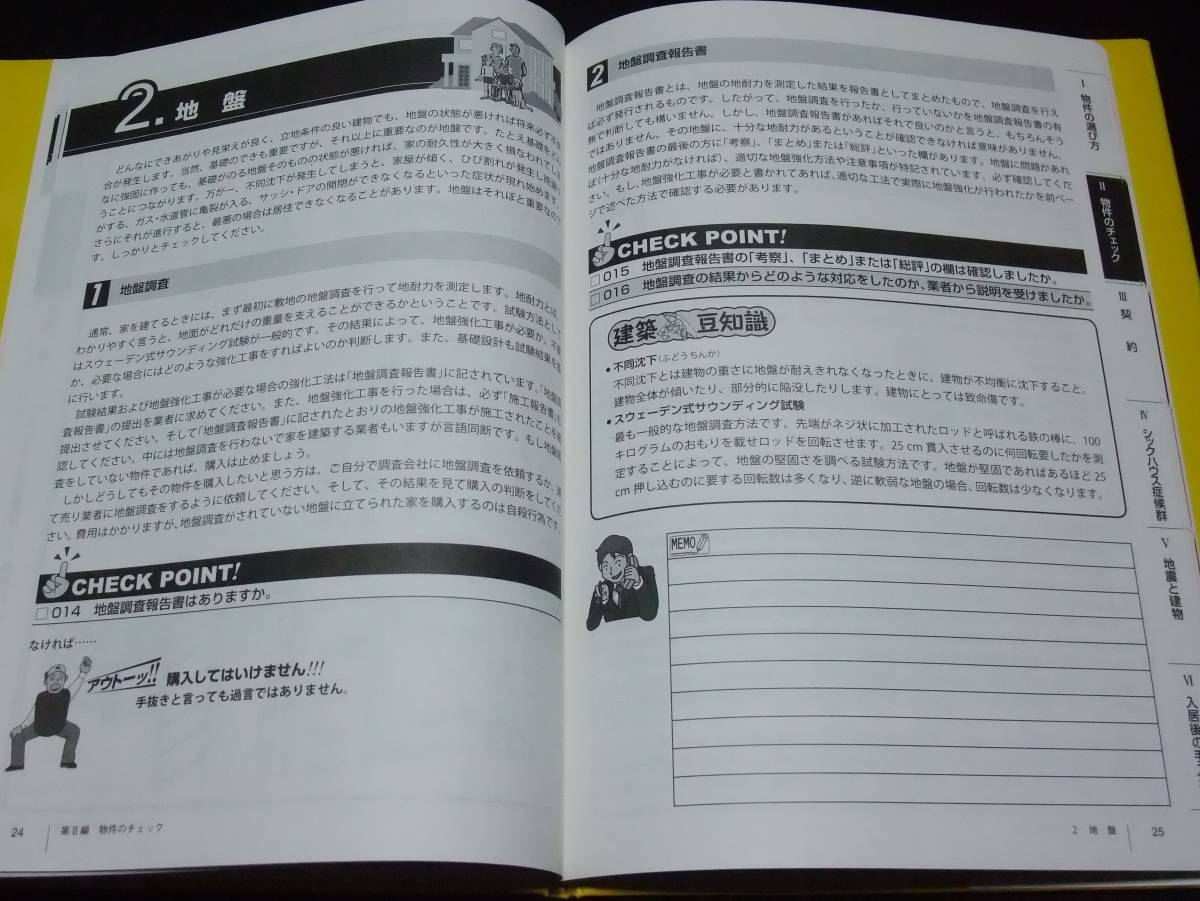 2. 地盤
どんなにできあがりや見栄えが良く、立地条件の良い建物でも、地盤の状態が悪ければ将来必ず不具
合が発生します。当然、基礎のできも重要ですが、それ以上に重要なのが地盤です。たとえ基礎をどん
なに強固に作っても、基礎がのる地盤そのものの状態が悪ければ、家の耐久性が大きく損なわれてしま
うことにつながります。万が一、不同沈下が発生してしまうと、家屋が傾く、ひび割れが発生し雨漏り
がする、ガス・水道管に亀裂が入る、サッシ・ドアの開閉ができなくなるといった症状が現れ始めます。
さらにそれが進行すると、最悪の場合は居住できなくなることがあります。地盤はそれほど重要なので
す。しっかりとチェックしてください。
1 地盤調査
通常、家を建てるときには、まず最初に敷地の地盤調査を行って地耐力を測定します。地耐力とは、
わかりやすく言うと、地面がどれだけの重量を支えることができるかということです。試験方法として
はスウェーデン式サウンディング試験が一般的です。その結果によって、地盤強化工事が必要か、不要
か、必要な場合にはどのような強化工事をすればよいのか判断します。また、基礎設計も試験結果を基
に行います。
試験結果および地盤強化工事が必要な場合の強化工法は「地盤調査報告書」に記されています。「地盤調
査報告書」の提出を業者に求めてください。また、地盤強化工事を行った場合は、必ず「施工報告書」も
提出させてください。そして「地盤調査報告書」に記されたとおりの地盤強化工事が施工されたことを確
認してください。中には地盤調査を行わないで家を建築する業者もいますが言語同断です。もし地盤調
査をしていない物件であれば、購入は止めましょう。
しかしどうしてもその物件を購入したいと思う方は、ご自分で調査会社に地盤調査を依頼するか、
て売り業者に地盤調査をするように依頼してください。そして、その結果を見て購入の判断をしてくだ
さい。費用はかかりますが、地盤調査がされていない地盤に立てられた家を購入するのは自殺行為です。
CHECK POINT!
□014 地盤調査報告書はありますか。
なければ……
アウトーッ!! 購入してはいけません!!!
手抜きと言っても過言ではありません。
24 第Ⅱ編 物件のチェック
2 地盤調査報告書
地盤調査報告書とは、地盤の地耐力を測定した結果を報告書としてまとめたもので、地盤調査を行え
ば必ず発行されるものです。したがって、地盤調査を行ったか、行っていないかを地盤調査報告書の有
無で判断しても構いません。しかし、地盤調査報告書があればそれで良いのかと言うと、もちろんそう
ではありません。その地盤に、十分な地耐力があるということが確認できなければ意味がありません。
地盤調査報告書の最後の方に「考察」、「まとめ」または「総評」といった欄があります。地盤に問題があれ
ば(十分な地耐力がなければ)、適切な地盤強化方法や注意事項が特記されています。必ず確認してくだ
さい。もし、地盤強化工事が必要と書かれてあれば、適切な工法で実際に地盤強化が行われたかを前ペー
ジで述べた方法で確認する必要があります。
CHECK POINT!
□015 地盤調査報告書の「考察」、「まとめ」または「総評」の欄は確認しましたか。
□016 地盤調査の結果からどのような対応をしたのか、業者から説明を受けましたか。
建築 豆知識
・不同沈下(ふどうちんか)
不同沈下とは建物の重さに地盤が耐えきれなくなったときに、建物が不均衡に沈下すること。
建物全体が傾いたり、部分的に陥没したりします。建物にとっては致命傷です。
・スウェーデン式サウンディング試験
最も一般的な地盤調査方法です。先端がネジ状に加工されたロッドと呼ばれる鉄の棒に、100
キログラムのおもりを載せロッドを回転させます。25 cm 貫入させるのに何回転要したかを測
定することによって、地盤の堅固さを調べる試験方法です。地盤が堅固であればあるほど 25
cm 押し込むのに要する回転数は多くなり、逆に軟弱な地盤の場合、回転数は少なくなります。
MEMO
2 地盤 25
Ⅰ 物件の選び方
Ⅱ 物件のチェック
Ⅲ 契約
Ⅳ シックハウス症候群
Ⅴ 地震と建物
Ⅵ 入居後の手